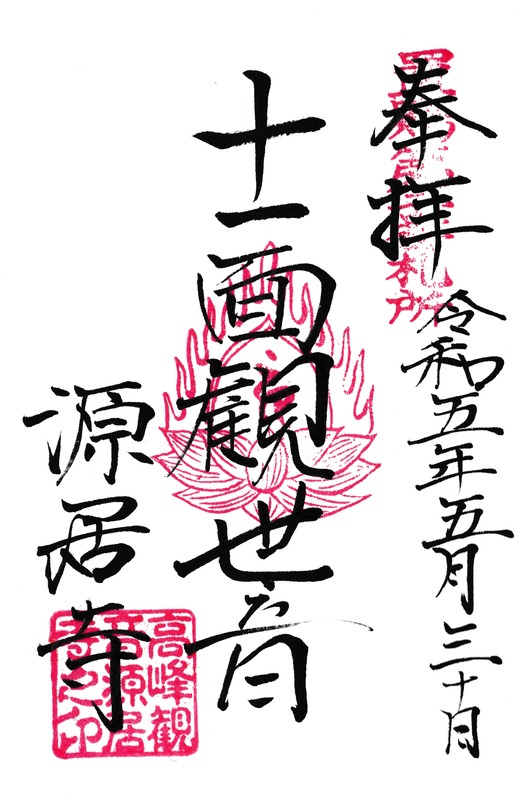 奉拝
令和五年五月三十日
十一面観世音
源居寺
高峰観
音源居
寺之印